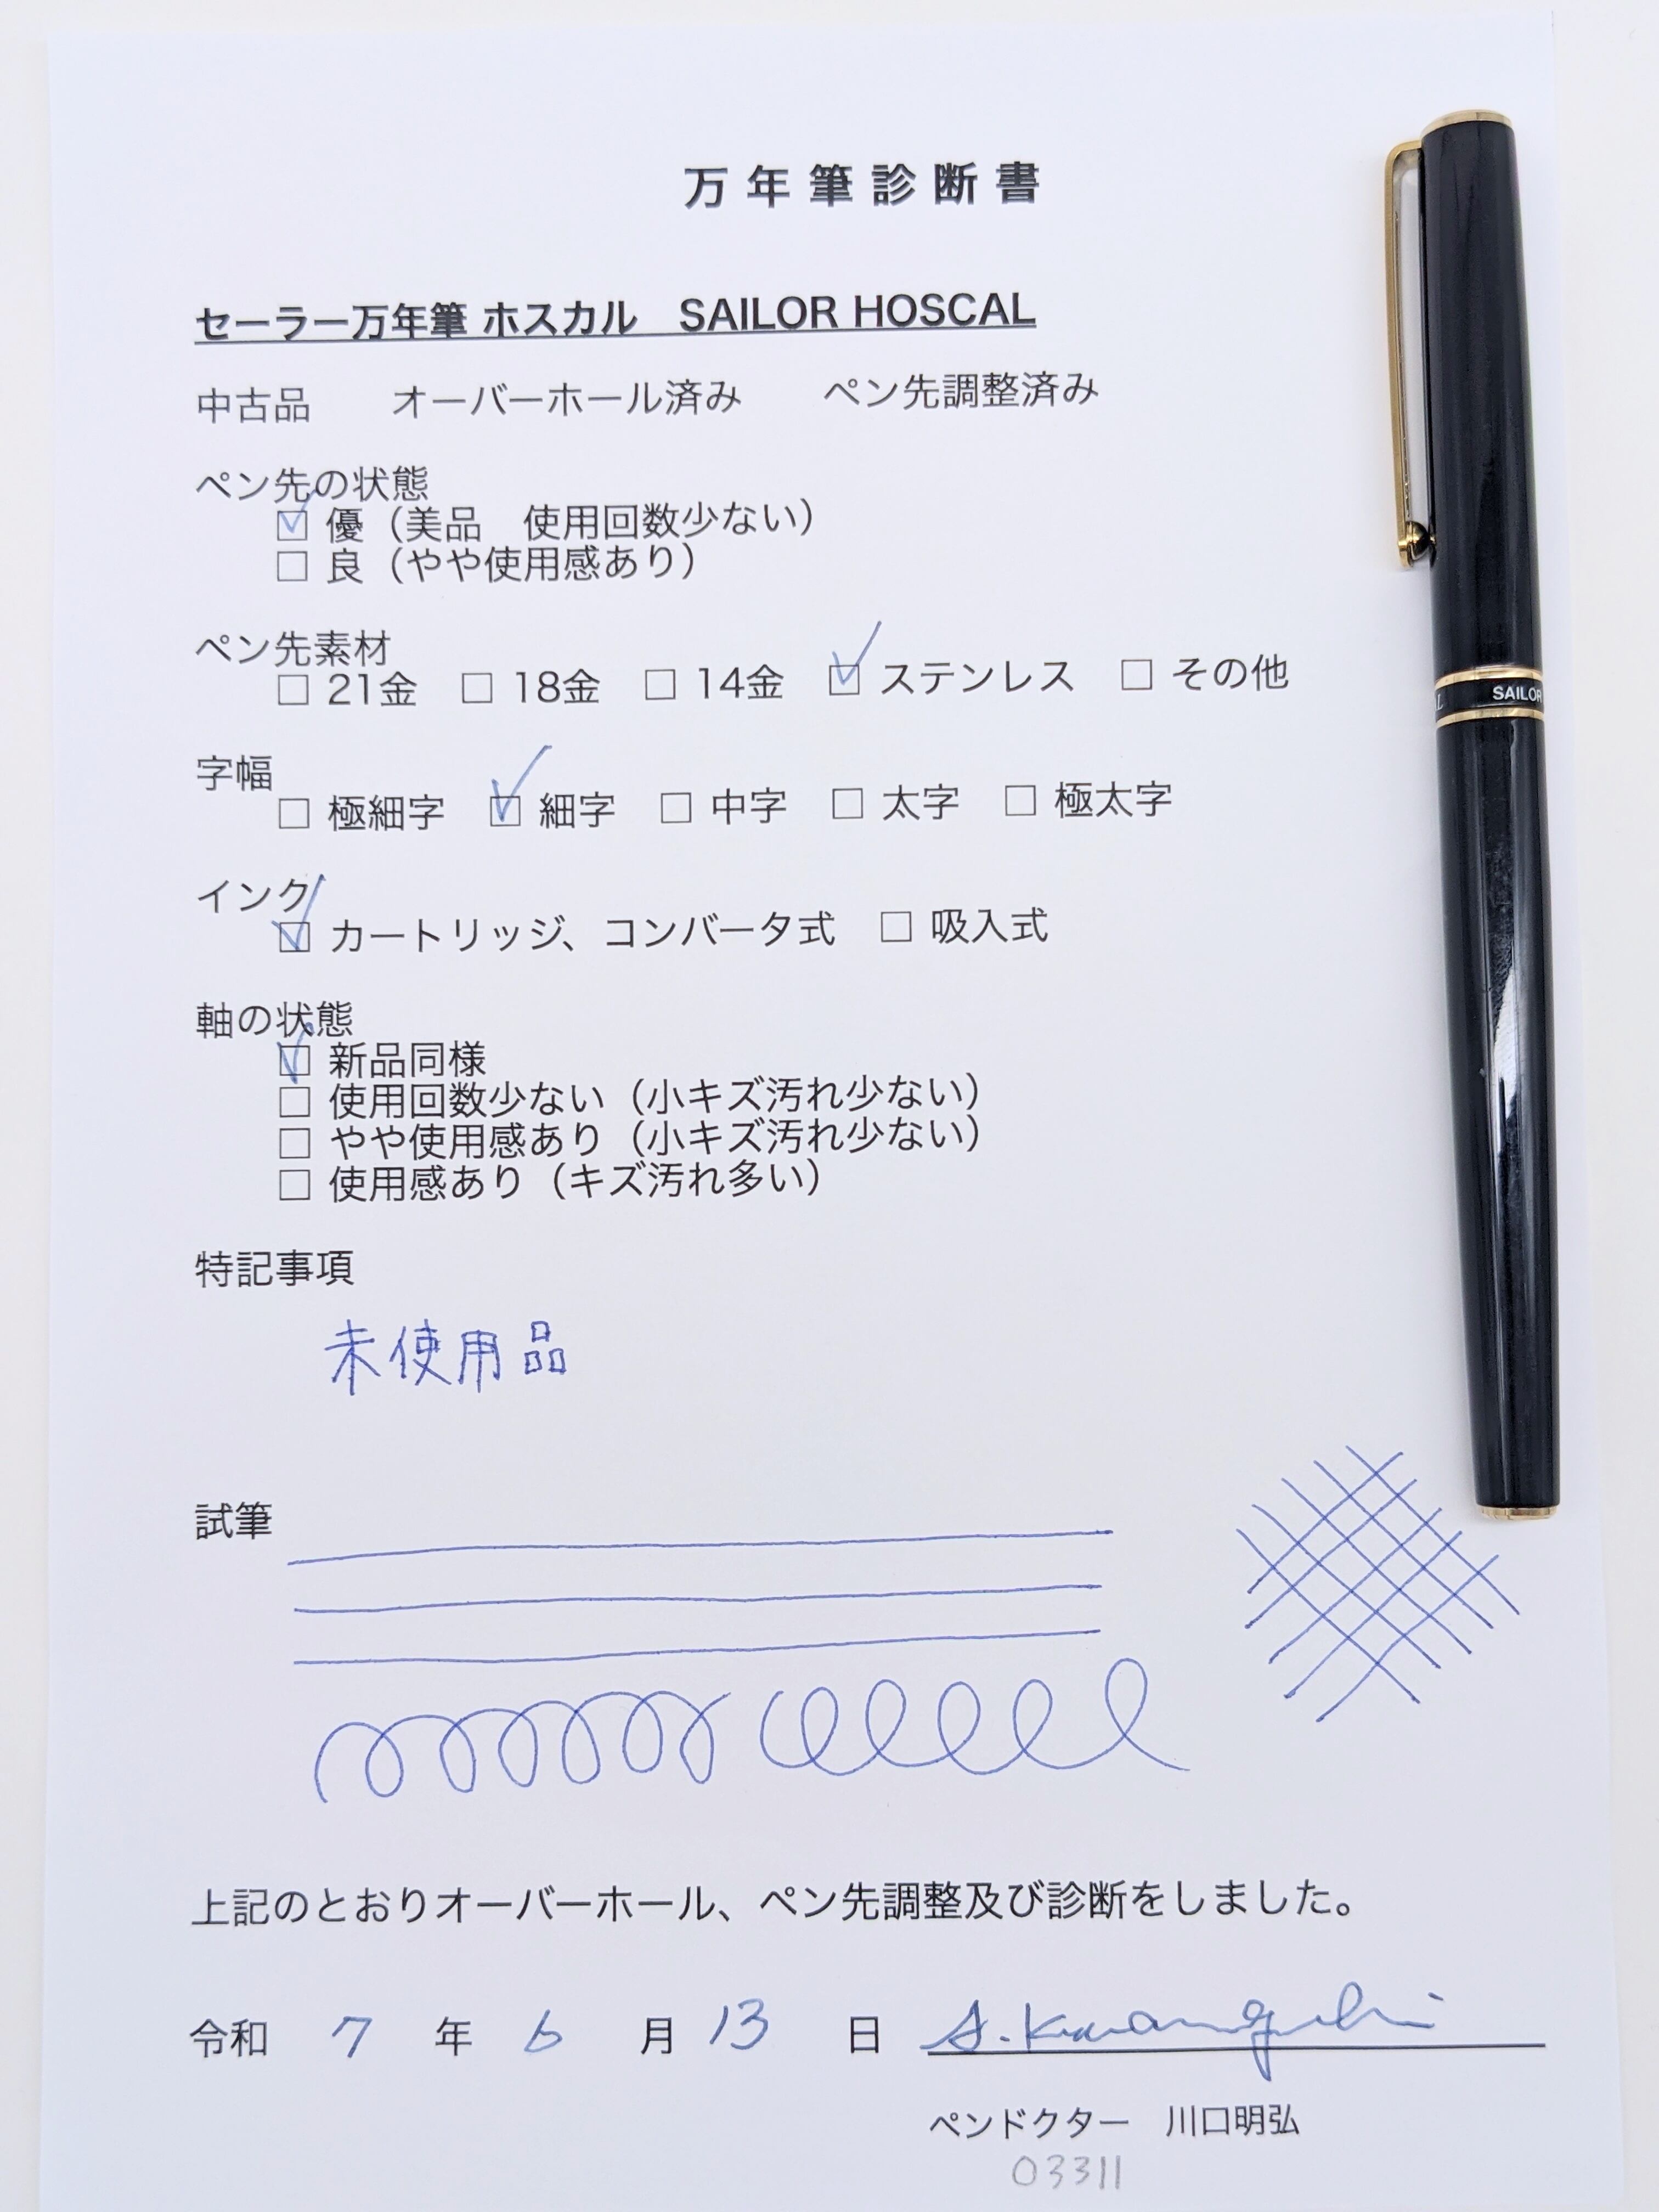 万年筆診断書
セーラー万年筆 ホスカル　SAILOR HOSCAL
中古品　オーバーホール済み　ペン先調整済み
ペン先の状態
☑ 優（美品　使用回数少ない）
□ 良（やや使用感あり）
ペン先素材
□ 21金　□ 18金　□ 14金　☑ ステンレス　□ その他
字幅
□ 極細字　☑ 細字　□ 中字　□ 太字　□ 極太字
インク
☑ カートリッジ、コンバータ式　□ 吸入式
軸の状態
☑ 新品同様
□ 使用回数少ない（小キズ汚れ少ない）
□ やや使用感あり（小キズ汚れ少ない）
□ 使用感あり（キズ汚れ多い）
特記事項
未使用品
試筆
上記のとおりオーバーホール、ペン先調整及び診断をしました。
令和 7 年 6 月 13 日 A. Kawaguchi
ペンドクター　川口明弘
03311
SAILOR